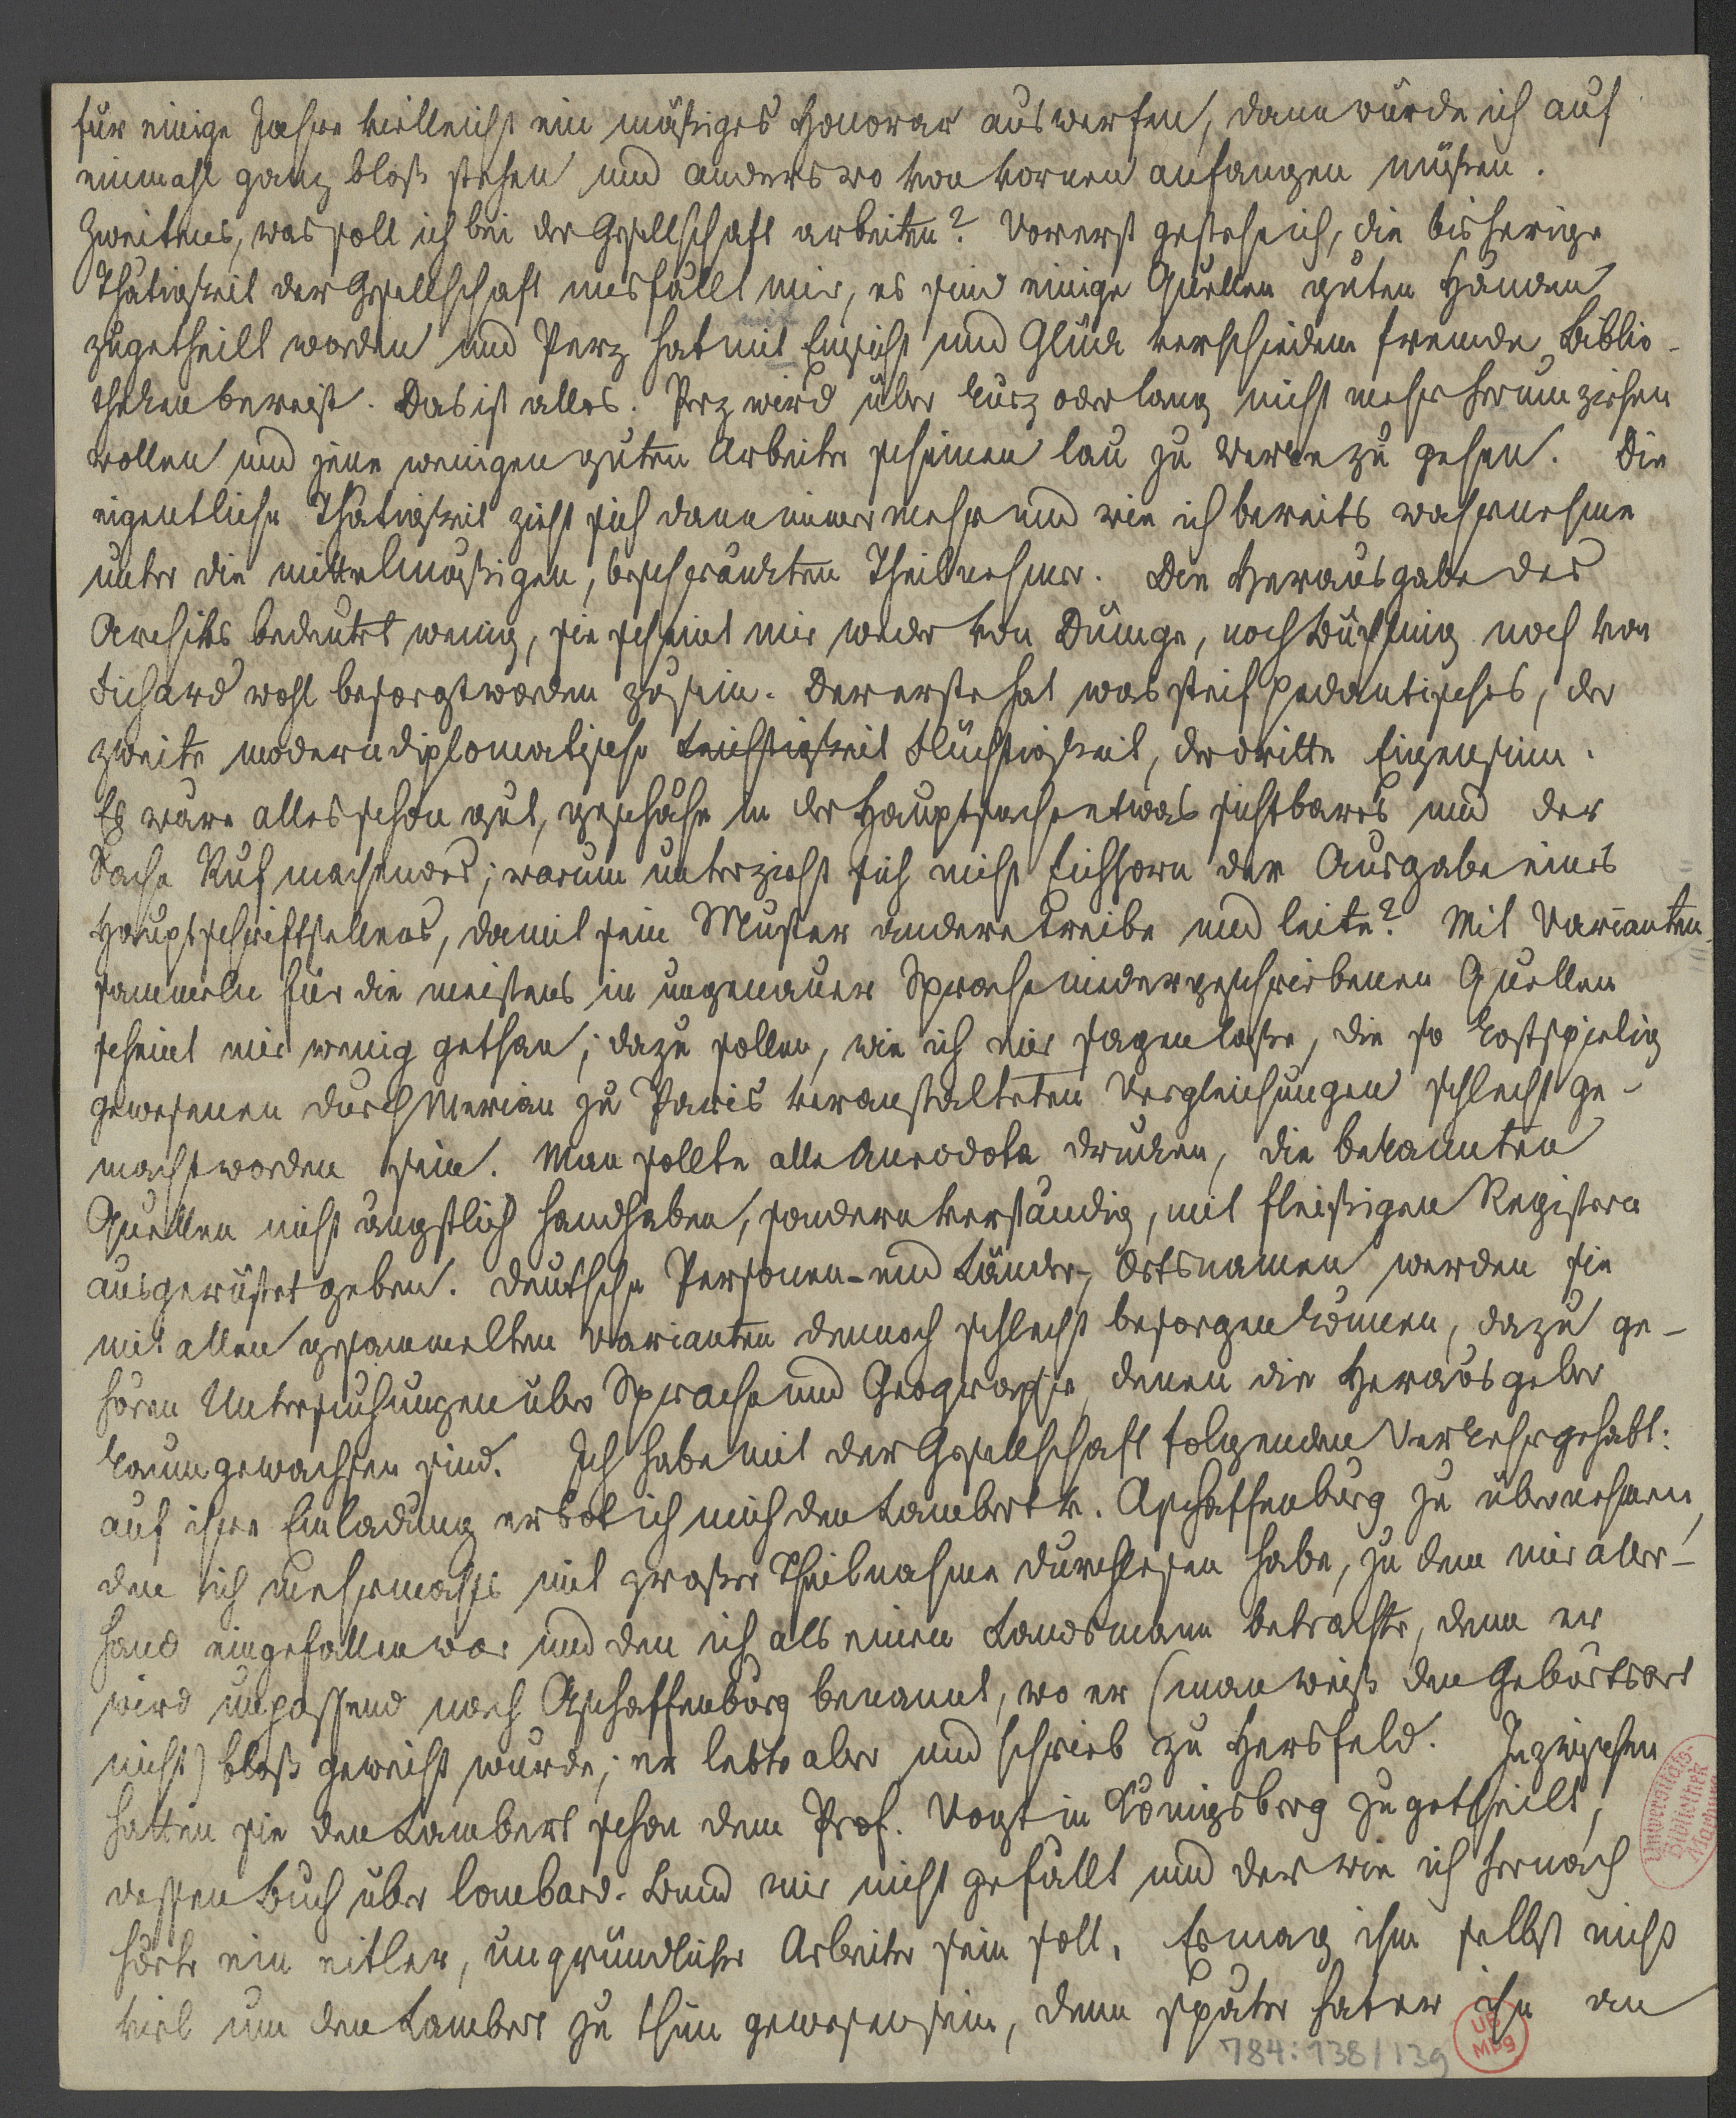 für einige Jahre vielleicht ein mäßiges Honorar auswerfen, dann würde ich auf
einmahl ganz bloß stehen und anderswo von vornen anfangen müßen.
Zweitens, was soll ich bei der Gesellschaft arbeiten? Vorerst gestehe ich, die bisherige
Thätigkeit der Gesellschaft misfällt mir, es sind einige Quellen guten Händen
zugetheilt worden und Perz hat mit Einsicht und Glück verschiedene fremde Biblio-
theken bereist. Das ist alles. Perz wird über kurz oder lang nicht mehr herumziehen
wollen und jene wenigen guten Arbeiter scheinen lau zu Werke zu gehen. Die
eigentliche Thätigkeit zieht sich dann immer mehr und wie ich bereits wahrnehme
unter die mittelmäßigen, beschränckten Theilnehmer. Die Herausgabe des
Archivs bedeutet wenig, sie scheint mir weder von Dümge, noch Büchler noch von
Fichard wohl besorgt worden zu sein. Der erste hat was steif pedantisches, der
zweite moderndiplomatische Leichtigkeit Flüchtigkeit, der dritte Eigensinn.
Es wäre alles schon gut, geschähe in der Hauptsache etwas sichtbares und der
Sache Ruf machendes; warum unterzieht sich nicht Eichhorn der Ausgabe eines
Hauptschriftstellers, damit sein Muster andere treibe und leite? Mit Varianten
sammeln für die meistens in ungenauer Sprache niedergeschriebenen Quellen
scheint mir wenig gethan; dazu sollen, wie ich mir sagen laße, die so kostspielig
gewesenen durch Merian zu Paris veranstalteten Vergleichungen schlecht ge-
macht worden sein. Man sollte alle Anecdota drucken, die bekannten
Quellen nicht ängstlich handhaben, sondern verständig, mit fleißigen Registern
ausgerüstet geben. Deutsche Personen- und Länder-, Ortsnamen werden sie
mit allen gesammelten Varianten dennoch schlecht besorgen können, dazu ge-
hören Untersuchungen über Sprache und Geographie, denen die Herausgeber
kaum gewachsen sind. Ich habe mit der Gesellschaft folgenden Verkehr gehabt:
auf ihre Einladung erbot ich mich den Lambert v. Aschaffenburg zu übernehmen,
den ich mehrmahls mit großer Theilnahme durchlesen habe, zu dem mir aller-
hand eingefallen war und den ich als einen Landsmann betrachte, denn er
wird unpassend nach Aschaffenburg benannt, wo er (man weiß den Geburtsort
nicht) bloß geweiht wurde; er lebte aber und schrieb zu Hersfeld. Inzwischen
hatten sie den Lambert schon dem Prof. Vogt in Königsberg zugetheilt,
dessen Buch über lombard. Bund mir nicht gefällt und der wie ich hernach
hörte ein eitler, ungründlicher Arbeiter sein soll. Es mag ihm selbst nicht
viel um den Lambert zu thun gewesen sein, denn später hat er ihn an
784:138/139
UB
Mbg
Universitäts-
Bibliothek
Marburg